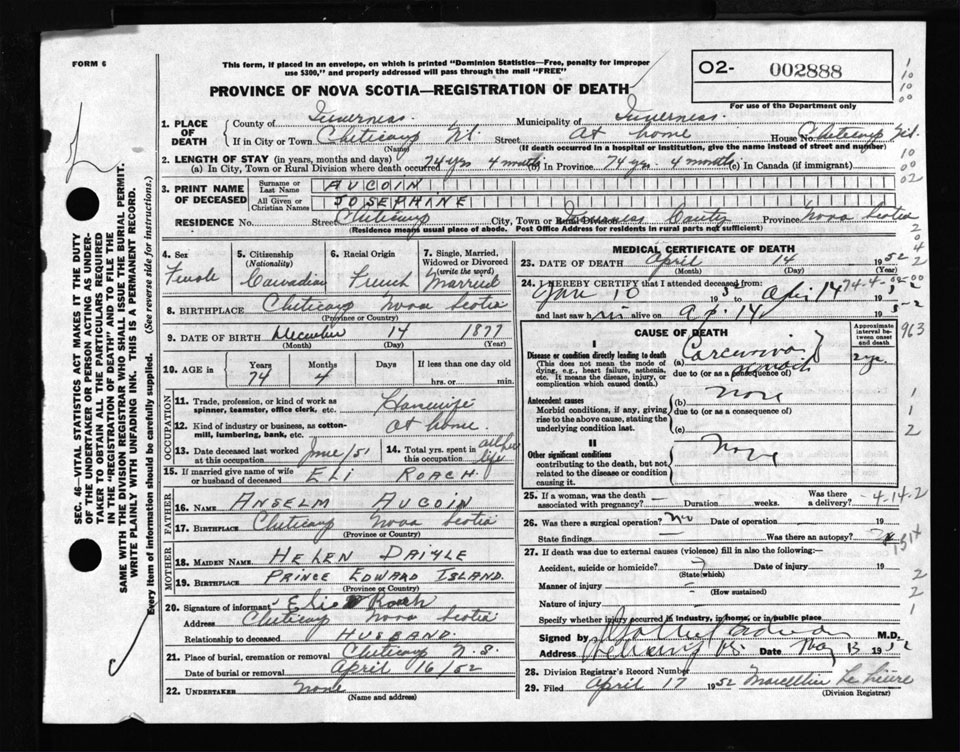 FORM 6
This form, if placed in an envelope, on which is printed "Dominion Statistics—Free, penalty for improper
use $300," and properly addressed will pass through the mail "FREE"
PROVINCE OF NOVA SCOTIA—REGISTRATION OF DEATH
02- 002888
For use of the Department only
1. PLACE OF DEATH
County of Inverness. Municipality of Inverness.
If in City or Town Cheticamp Street At home House No. Cheticamp
(Name) (If death occurred in a hospital or institution, give the name instead of street and number)
2. LENGTH OF STAY (in years, months and days)
(a) In City, Town or Rural Division where death occurred 74 yrs 4 months (b) In Province 74 yrs. 4 months (c) In Canada (if immigrant)
3. PRINT NAME OF DECEASED
Surname or Last Name AUCOIN
All Given or Christian Names JOSEPHINE
RESIDENCE No. Street Cheticamp City, Town or Rural Division Inverness County Province Nova Scotia
(Residence means usual place of abode. Post Office Address for residents in rural parts not sufficient)
4. Sex Female
5. Citizenship (Nationality) Canadian
6. Racial Origin French
7. Single, Married, Widowed or Divorced (write the word) Married
8. BIRTHPLACE Cheticamp Nova Scotia
(Province or Country)
9. DATE OF BIRTH December 14 1877
(Month) (Day) (Year)
10. AGE in Years 74 Months 4 Days If less than one day old hrs. or min.
OCCUPATION
11. Trade, profession, or kind of work as spinner, teamster, office clerk, etc. Housewife
12. Kind of industry or business, as cotton-mill, lumbering, bank, etc. At home.
13. Date deceased last worked at this occupation June/51
14. Total yrs. spent in this occupation all her life
15. If married give name of wife or husband of deceased ELI ROACH.
FATHER
16. NAME ANSELM AUCOIN
17. BIRTHPLACE Cheticamp Nova Scotia
(Province or Country)
MOTHER
18. MAIDEN NAME HELEN DAIGLE
19. BIRTHPLACE PRINCE EDWARD ISLAND.
(Province or Country)
20. Signature of informant Roach
Address Cheticamp Nova Scotia
Relationship to deceased HUSBAND.
21. Place of burial, cremation or removal Cheticamp N.S.
Date of burial or removal April 16/52
22. UNDERTAKER None
(Name and address)
MEDICAL CERTIFICATE OF DEATH
23. DATE OF DEATH April 14 1952
(Month) (Day) (Year)
24. I HEREBY CERTIFY that I attended deceased from:
Jan 10 to April 14
and last saw h alive on Ap. 14
CAUSE OF DEATH
Approximate interval between onset and death
I
Disease or condition directly leading to death
(This does not mean the mode of dying, e.g., heart failure, asthenia, etc. It means the disease, injury, or complication which caused death.)
(a) Carcinoma
due to (or as a consequence of)
Antecedent causes
Morbid conditions, if any, giving rise to the above cause, stating the underlying condition last.
(b) None
due to (or as a consequence of)
(c)
II
Other significant conditions
contributing to the death, but not related to the disease or condition causing it.
None
25. If a woman, was the death associated with pregnancy? — Duration weeks. Was there a delivery?
26. Was there a surgical operation? No Date of operation 19
State findings Was there an autopsy?
27. If death was due to external causes (violence) fill in also the following:—
Accident, suicide or homicide? Date of injury 19
(State which)
Manner of injury
(How sustained)
Nature of injury
Specify whether injury occurred in industry, in home, or in public place
Signed by M.D.
Address Date May 13 1952
28. Division Registrar's Record Number
29. Filed April 17 1952
(Division Registrar)
SEC. 46—VITAL STATISTICS ACT MAKES IT THE DUTY
OF THE UNDERTAKER OR PERSON ACTING AS UNDER-
TAKER TO OBTAIN ALL THE PARTICULARS REQUIRED
IN THE "REGISTRATION OF DEATH" AND TO FILE THE
SAME WITH THE DIVISION REGISTRAR WHO SHALL ISSUE THE BURIAL PERMIT.
WRITE PLAINLY WITH UNFADING INK. THIS IS A PERMANENT RECORD.
Every item of information should be carefully supplied. (See reverse side for instructions.)
963
-4-14-2